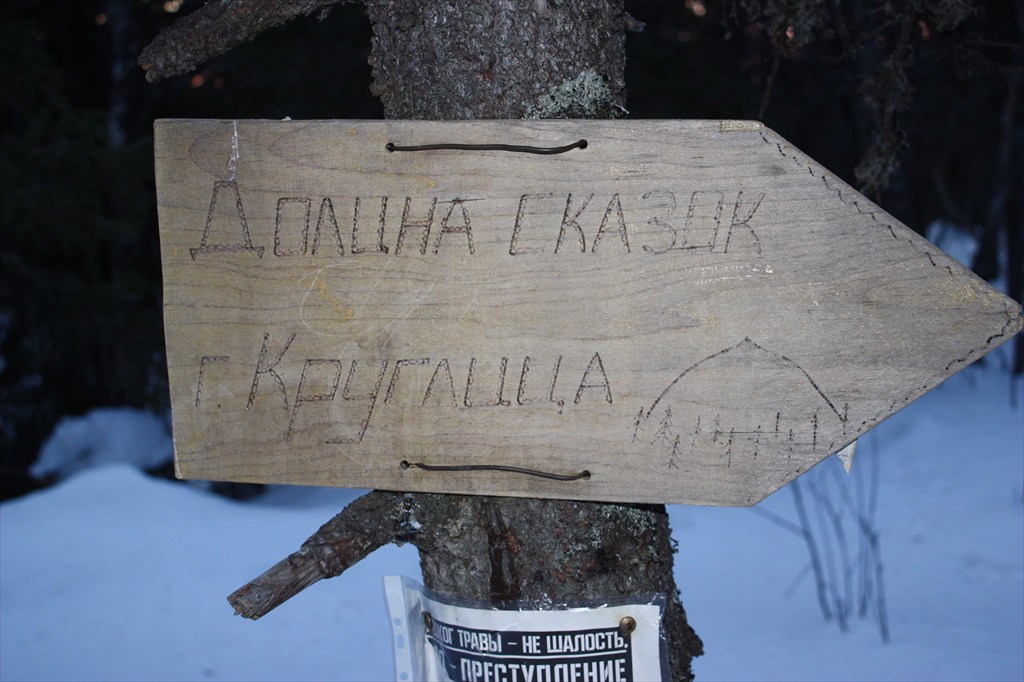 Долина сказок
г Круглица
ТРАВЫ – НЕ ШАЛОСТЬ,
– ПРЕСТУПЛЕНИЕ